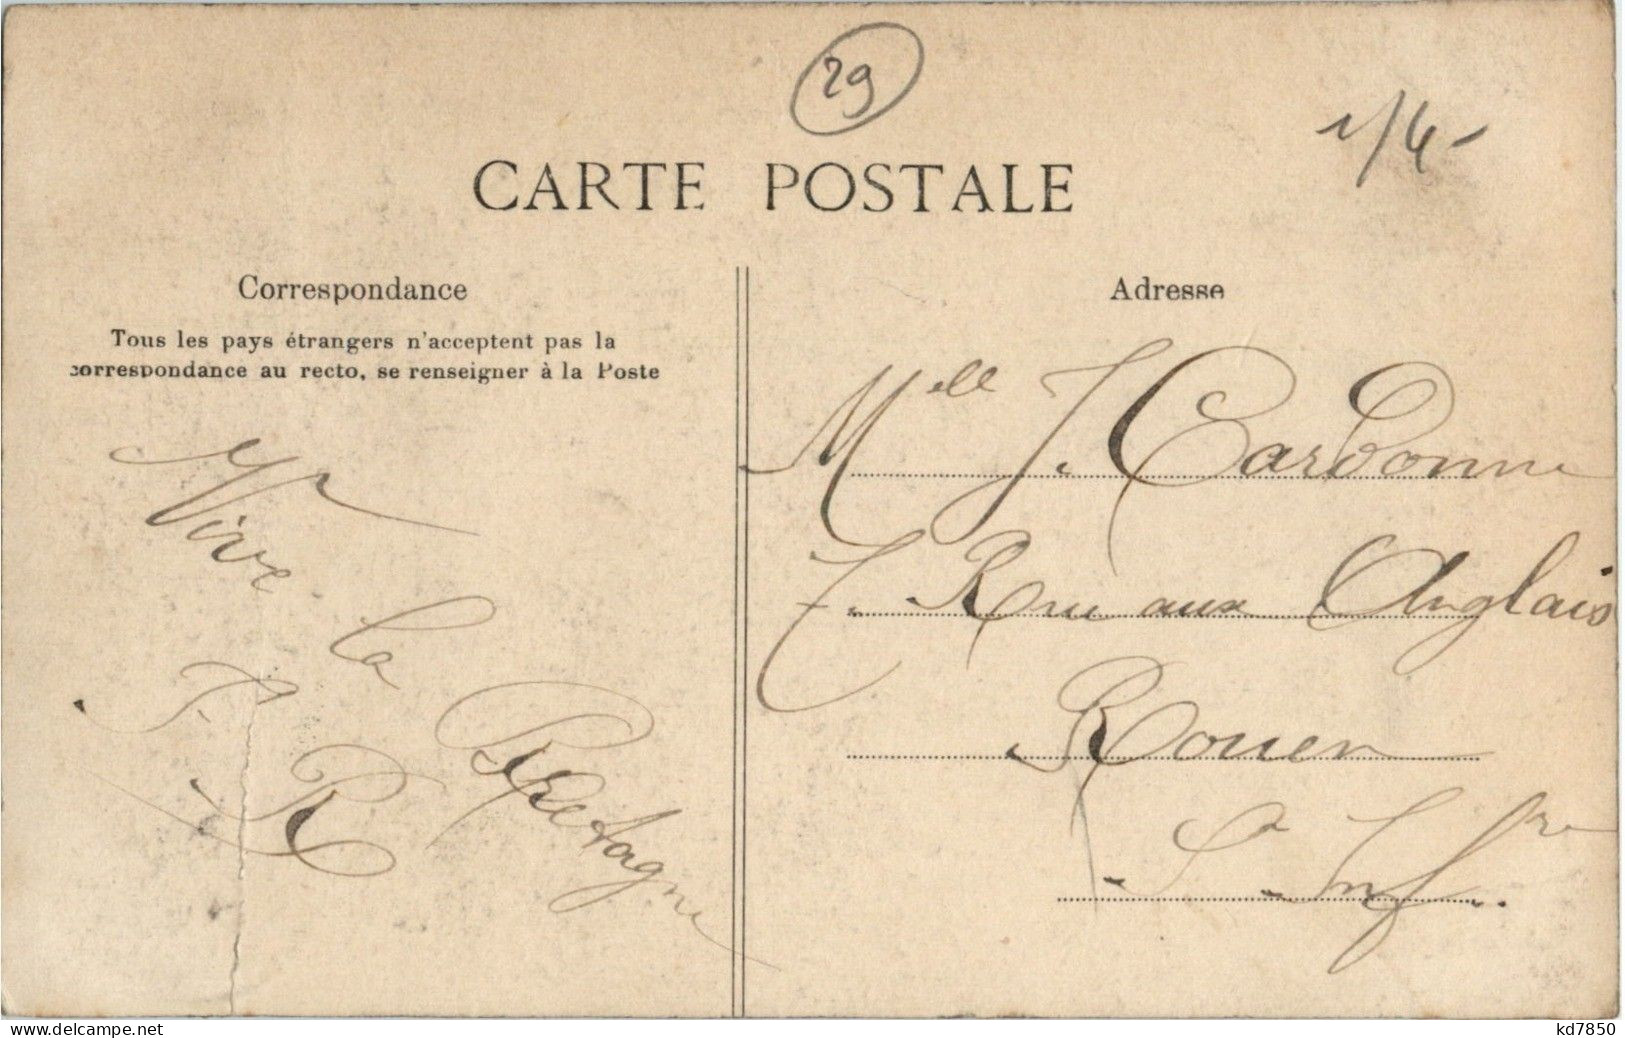 29
1/4-
CARTE POSTALE
Correspondance
Tous les pays étrangers n'acceptent pas la
correspondance au recto, se renseigner à la Poste
Vive
la
Bretagne
R
Adresse
Melle J. Cardonne
7. Rue aux Anglais
Rouen
S. Infre
Website: delcampe.net
kd7850